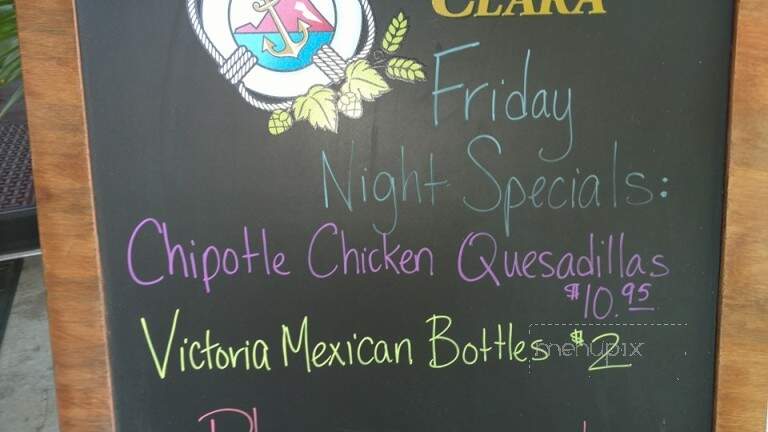 CLARA
Friday
Night Specials:
Chipotle Chicken Quesadillas
$10.95
Victoria Mexican Bottles $2
menupix